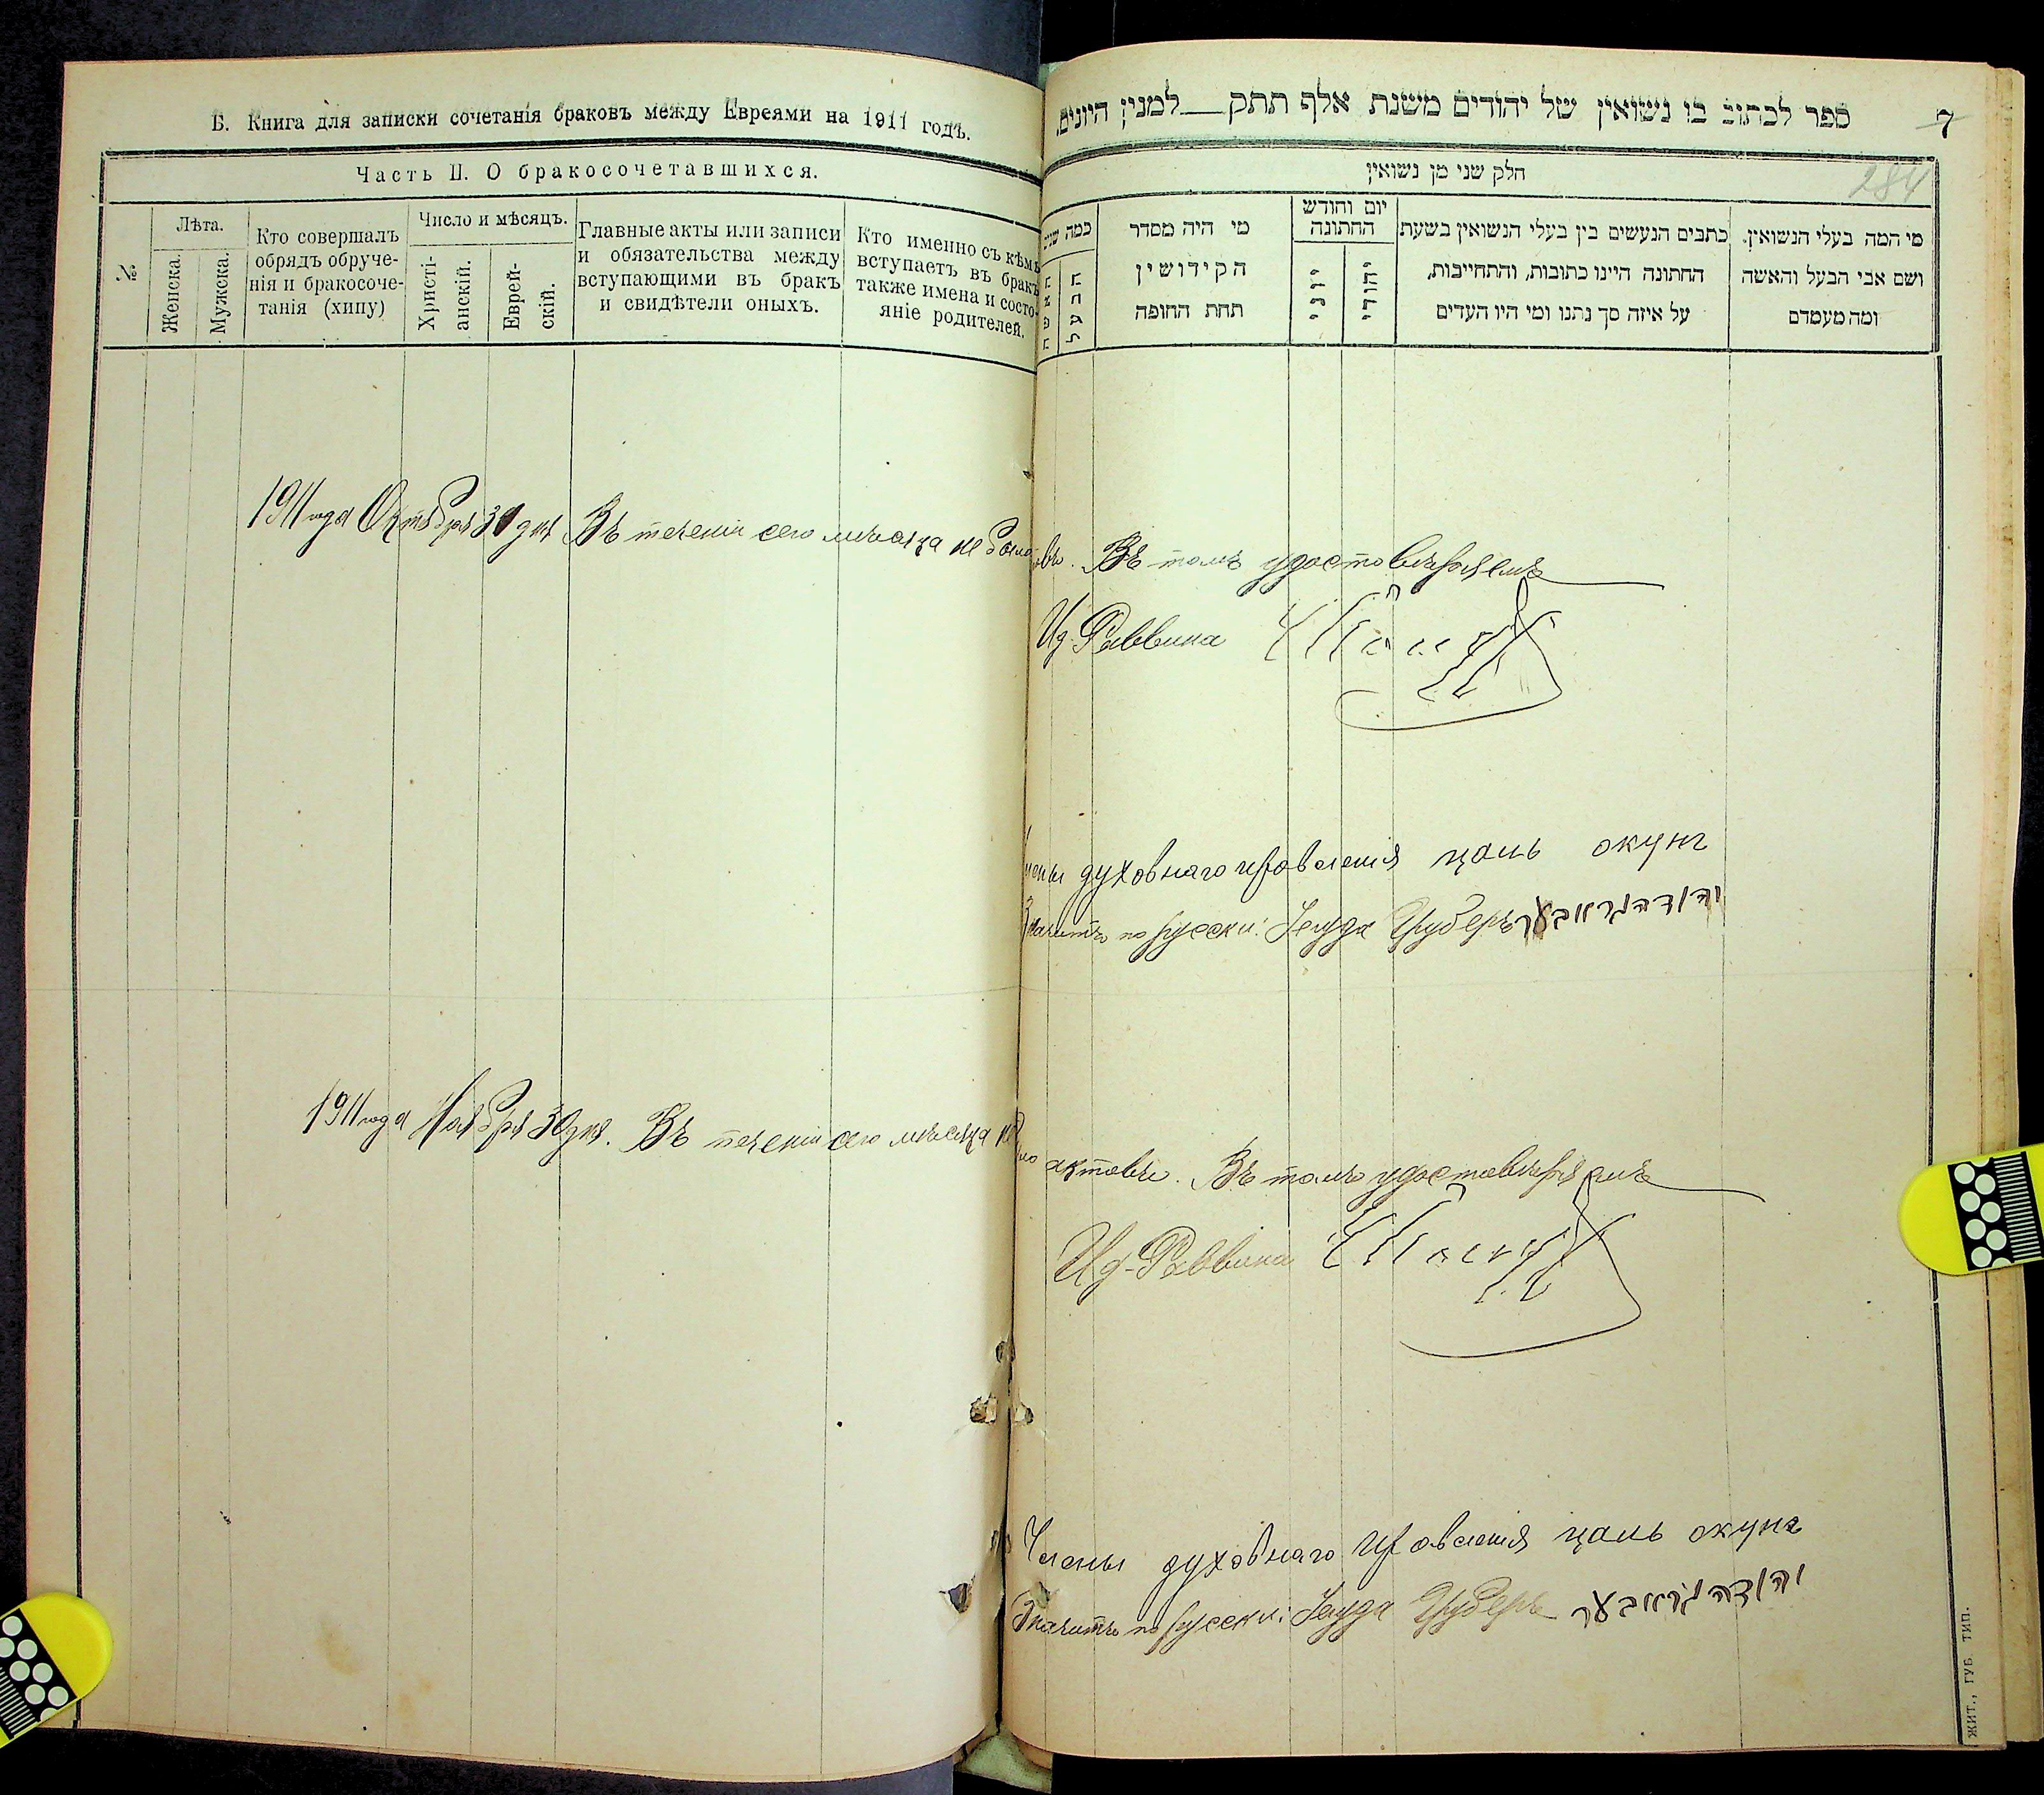 Б. Книга для записки сочетанія браковъ между Евреями на 1911 годъ.
Часть II. О бракосочетавшихся.
№
Лѣта.
Женска.
Мужска.
Кто совершалъ
обрядъ обруче-
нія и бракосоче-
танія (хипу)
Число и мѣсяцъ.
Христі-
анскій.
Еврей-
скій.
Главные акты или записи
и обязательства между
вступающими въ бракъ
и свидѣтели оныхъ.
Кто именно съ кѣмъ
вступаетъ въ бракъ
также имена и состо-
яніе родителей.
ספר לכתוב בו נשואין של יהודים משנת אלף תתק__למנין היונים
7
284
חלק שני מן נשואין
מי המה בעלי הנשואין.
ושם אבי הבעל והאשה
ומה מעמדם
כתבים הנעשים בין בעלי הנשואין בשעת
החתונה היינו כתובות, והתחייבות,
על איזה סך נתנו ומי היו העדים
יום וחודש
החתונה
יהודי
יוני
מי היה מסדר
הקידושין
תחת החופה
כמה שנים
הבעל
האשה
1911 года Октября 31 дня Въ теченіи сего мѣсяца не было
овъ. Въ томъ удостовѣряемъ
Ид. Раввина
члены духовнаго правленія цаль окунь
Значитъ по русски: Іегуда Груберъ יהודה גרובער
1911 года Ноября 30 дня. Въ теченіи сего мѣсяца не было актовъ. Въ томъ удостовѣряемъ
Ид. Раввина
Члены духовнаго правленія цаль окунь
Значитъ по русски: Іегуда Груберъ יהודה גרובער
ЖИТ., ГУБ. ТИП.